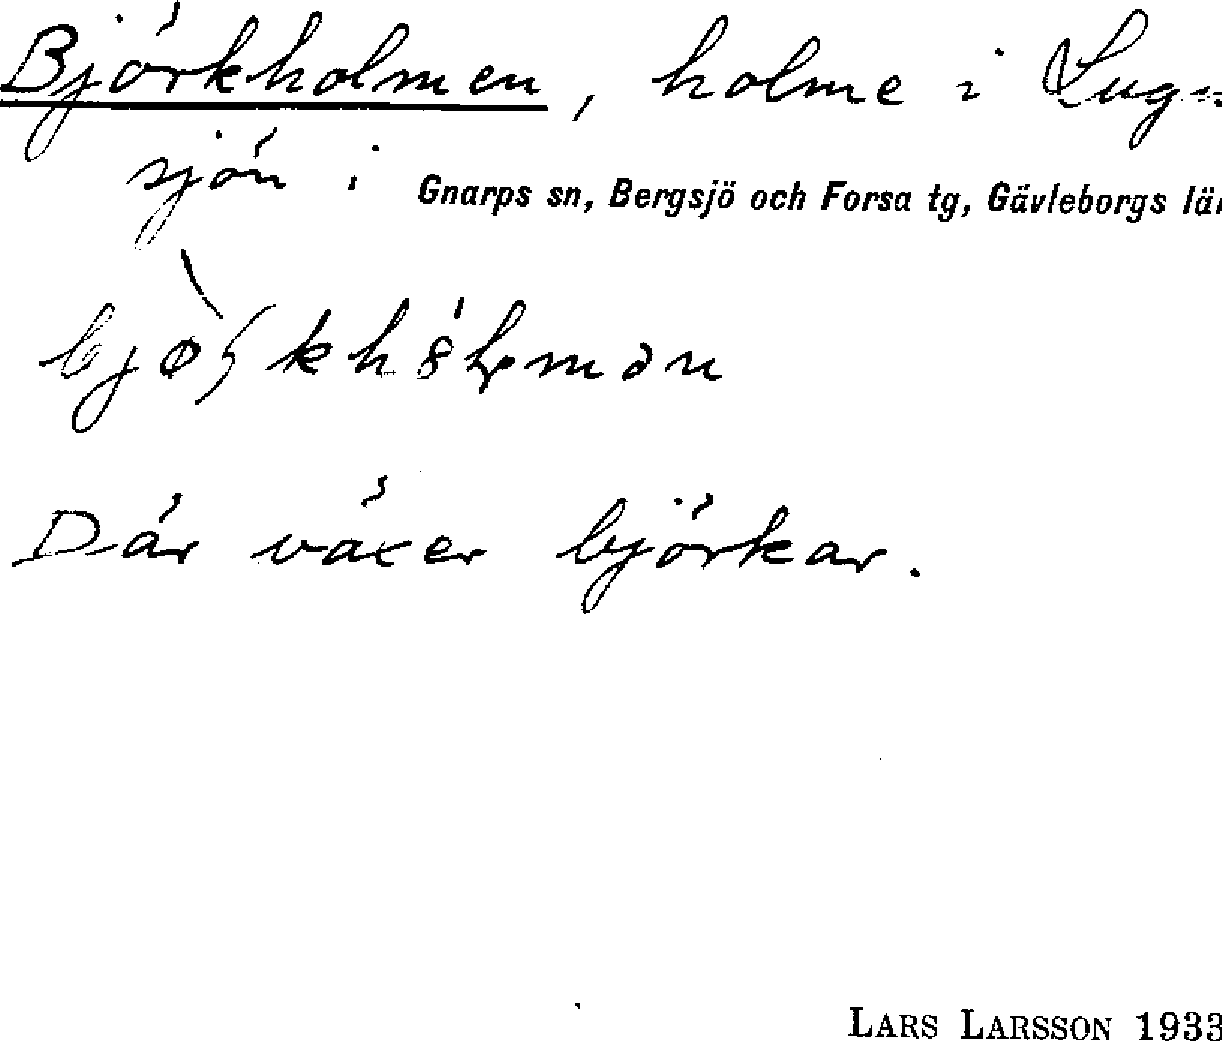 Björkholmen, holme i Lug-
sjön i Gnarps sn, Bergsjö och Forsa tg, Gävleborgs län
Där växer björkar.
LARS LARSSON 1933